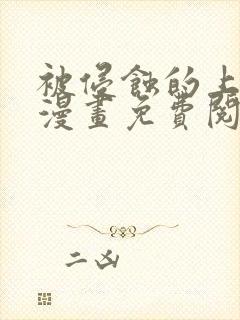 被侵蝕的上
漫畫免費閱
二凶